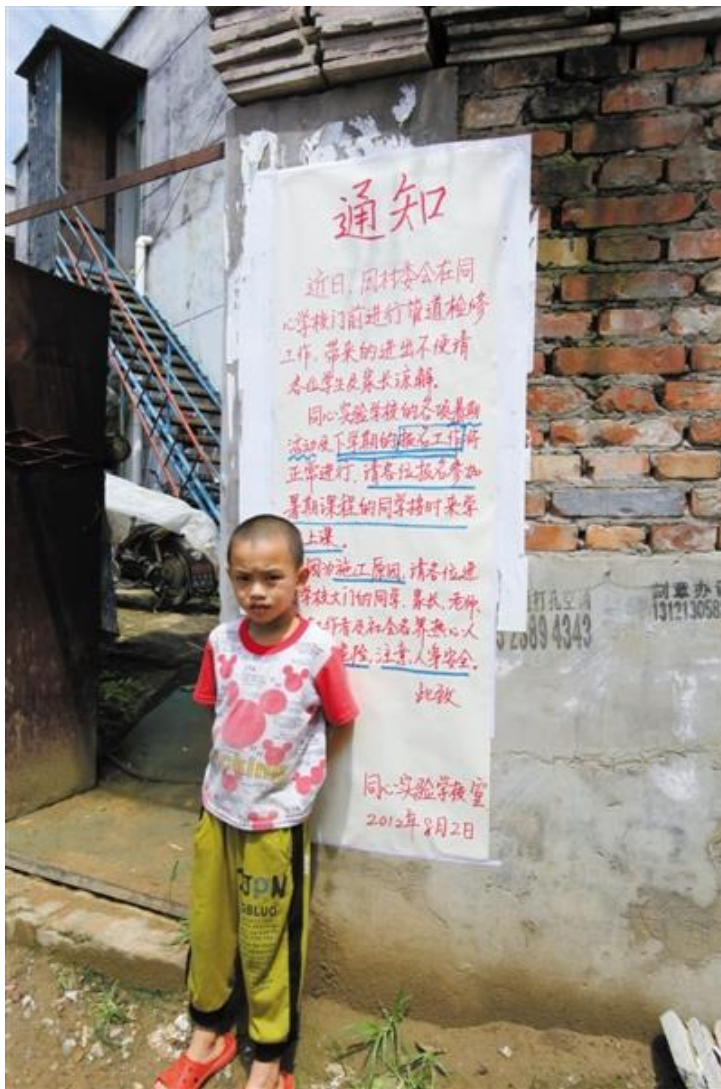 通知
近日，因村委会在同
心学校门前进行管道检修
工作，带来的进出不便请
各位学生及家长谅解。
同心实验学校的各项暑期
活动及下学期的报名工作
正常进行，请各位报名参加
暑期课程的同学按时来学
上课。
因为施工原因，请各位进
学校大门的同学、家长、老师、
工作者及社会各界热心人
危险，注意人身安全。
此致
同心实验学校宣
2012年8月2日
打孔空调
52889 4343
刻章办
13121305
JPN
GBLUO